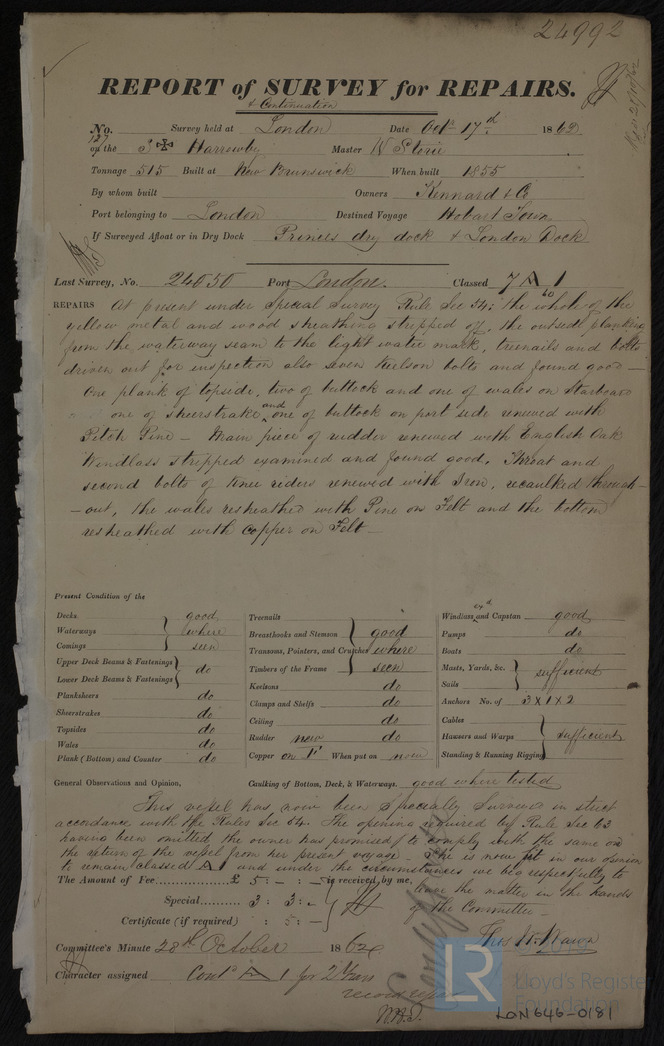 24992
REPORT of SURVEY for REPAIRS.
& Continuation
No. 127 Survey held at London Date Octr 17th 1862
on the S Harrowby Master W Storie
Tonnage 515 Built at New Brunswick When built 1855
By whom built Owners Kinnard & Co
Port belonging to London Destined Voyage Hobart Town
If Surveyed Afloat or in Dry Dock Princes dry dock & London Dock
Last Survey, No. 24050 Port London. Classed 7 A 1
REPAIRS At present under Special Survey Rule Sec 54; the whole of the
yellow metal and wood sheathing stripped off, the outside planking
from the waterway seam to the light water mark, treenails and bolts
driven out for inspection also seven keelson bolts and found good —
One plank of topside, two of buttock and one of wales on Starboard
one of sheerstrake and one of buttock on port side renewed with
Pitch Pine — Main piece of rudder renewed with English Oak
Windlass stripped examined and found good. Throat and
second bolts of knee riders renewed with Iron, recaulked through-
-out, the wales resheathed with Pine on Felt and the bottom
resheathed with copper on Felt —
Present Condition of the
Decks good
Waterways where
Comings seen
Upper Deck Beams & Fastenings
Lower Deck Beams & Fastenings do
Planksheers do
Sheerstrakes do
Topsides do
Wales do
Plank (Bottom) and Counter do
Treenails
Breasthooks and Stemson good
Transoms, Pointers, and Crutches where
Timbers of the Frame seen
Keelsons do
Clamps and Shelfs do
Ceiling do
Rudder new do
Copper on F When put on now
Windlass exd and Capstan good
Pumps do
Boats do
Masts, Yards, &c. sufficient
Sails
Anchors No. of 3 X 1 X 2
Cables
Hawsers and Warps sufficient
Standing & Running Rigging
General Observations and Opinion, Caulking of Bottom, Deck, & Waterways. good where tested
This vessel has now been Specially Surveyed in strict
accordance with the Rules Sec 54. The opening required by Rule Sec 63
having been omitted the owner has promised to comply with the same on
the return of the vessel from her present voyage — She is now fit in our opinion
to remain classed A 1 and under the circumstances we beg respectfully to
leave the matter in the hands
of the Committee —
The Amount of Fee £ 5 : — : — is received by me,
Special 3 : 3 : —
Certificate (if required) : 5 : —
Thos W. Wawn
Committee's Minute 28th October 1862
Character assigned Contd A 1 for 2 Years
W.H.T.
LR
Lloyd's Register
Foundation
LON646-0181